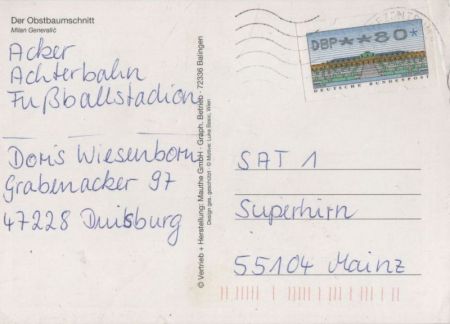 Der Obstbaumschnitt
Milan Generalić
Acker
Achterbahn
Fußballstadion
Doris Wiesenborn
Grabenacker 97
47228 Duisburg
© Vertrieb + Herstellung: Mauthe GmbH · Graph. Betrieb · 72336 Balingen
DBP**80*
DEUTSCHE BUNDESPOST
SAT 1
Superhirn
55104 Mainz